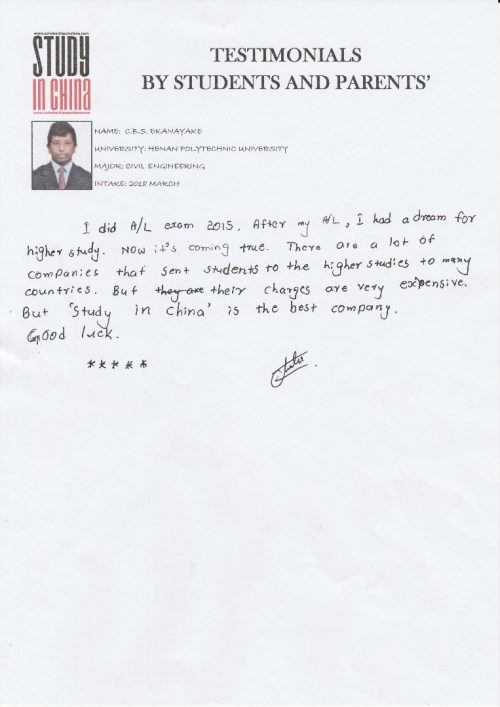 www.scholarshipsinchina.com
STUDY
IN CHINA
www.scholarshipsinchina.com
TESTIMONIALS
BY STUDENTS AND PARENTS’
NAME: C.B.S. EKANAYAKE
UNIVERSITY: HENAN POLYTECHNIC UNIVERSITY
MAJOR: CIVIL ENGINEERING
INTAKE: 2018 MARCH
I did A/L exam 2015. After my A/L, I had a dream for
higher study. Now it's coming true. There are a lot of
companies that sent students to the higher studies to many
countries. But they are their charges are very expensive.
But 'Study in China' is the best company.
Good luck.
* * * * *